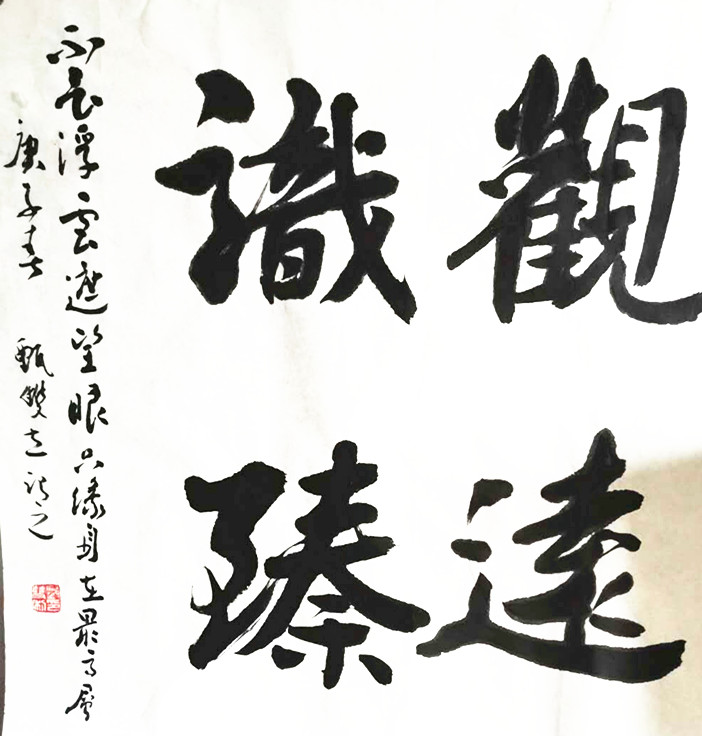 觀遠
識臻
不畏浮雲遮望眼只緣身在最高層
庚子春 甄